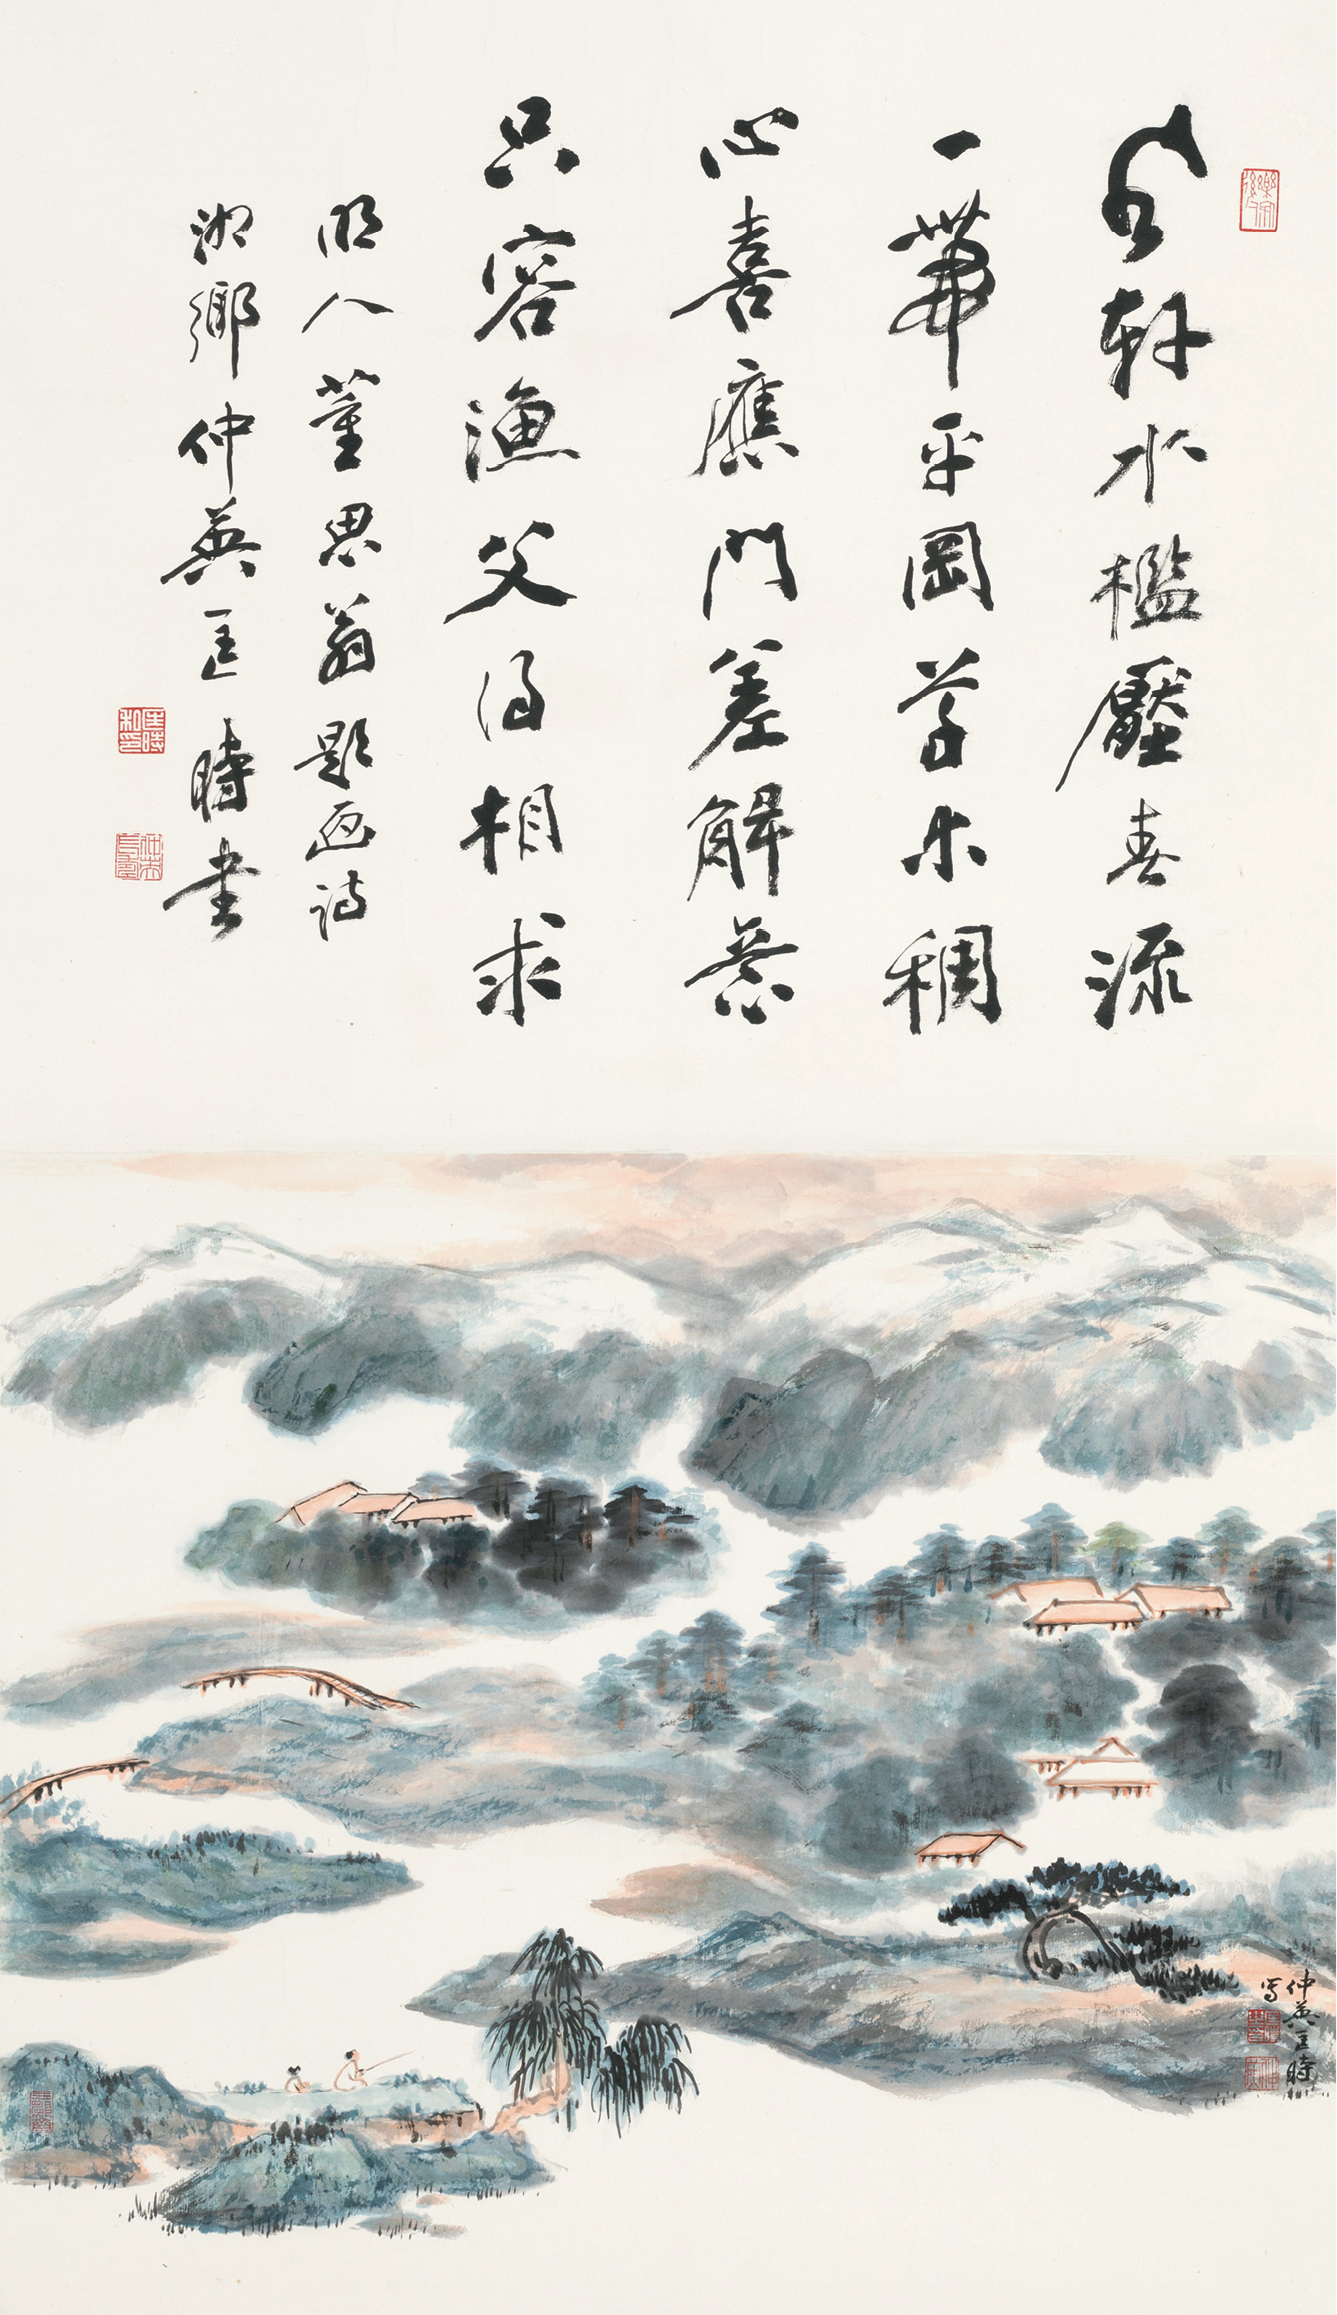 風軒水檻壓春流
一帶平岡草木稠
心喜應門差解意
只容漁父得相求
明人董思翁題畫詩
湘鄉仲英匡時書
仲英匡時
寫